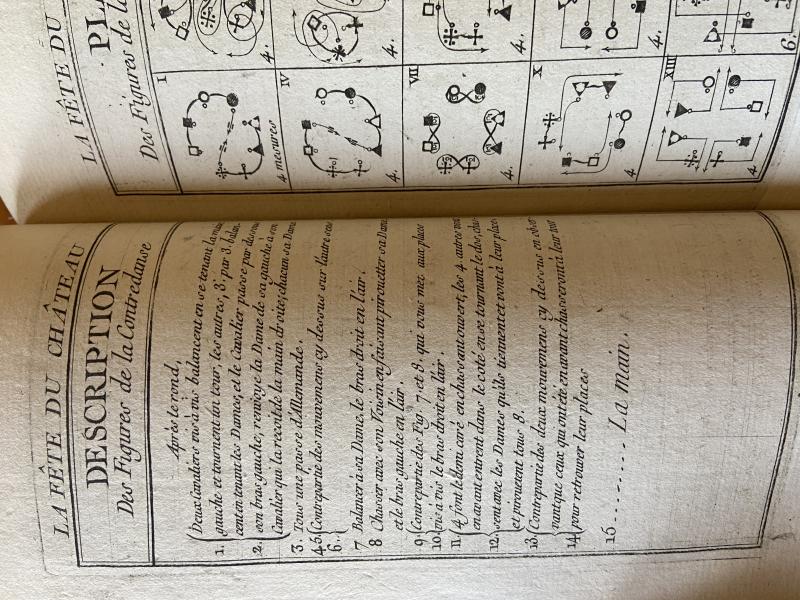 LA FÊTE DU CHÂTEAU
DESCRIPTION
Des Figures de la Contredanse
Après le rond,
Deux Cavaliers vis à vis balancent en se tenant la main
1. gauche et tournent un tour, les autres, 3e, par 3. balan
cent en tenant les Dames, et le Cavalier passe par dessous
2. son bras gauche, renvoye la Dame de sa gauche à son
Cavalier qui la recoit de la main droite, chacun sa Dame
3. Tous une passe d'Allemande.
4.5 Contrepartie des mouvemens cy dessus sur l'autre sens
6..
7 Balancer à sa Dame, le bras droit en l'air.
8 Chasser avec son Voisin en faisant pirouetter sa Dame
et le bras gauche en l'air.
9. Contrepartie des Fig. 7 et 8. qui vous met aux places
10. vis à vis le bras droit en l'air.
11. 4 font le demi carré en chassant ouvert, les 4 autres
en avant entrent dans le coté en se tournant le dos,
12. sent avec les Dames qu'ils tiennent et vont à leur places
et pirouent tous 8.
13. Contrepartie des deux mouvemens cy dessus en obser
vant que ceux qui ont été en avant chasseront à leur tour
14. pour retrouver leur places
15 .......... La main.
LA FÊTE DU
PL
Des Figures de la
4.
4.
4.
4.
6.
I
4 mesures
IV
4.
VII
4.
X
4
XIII
4